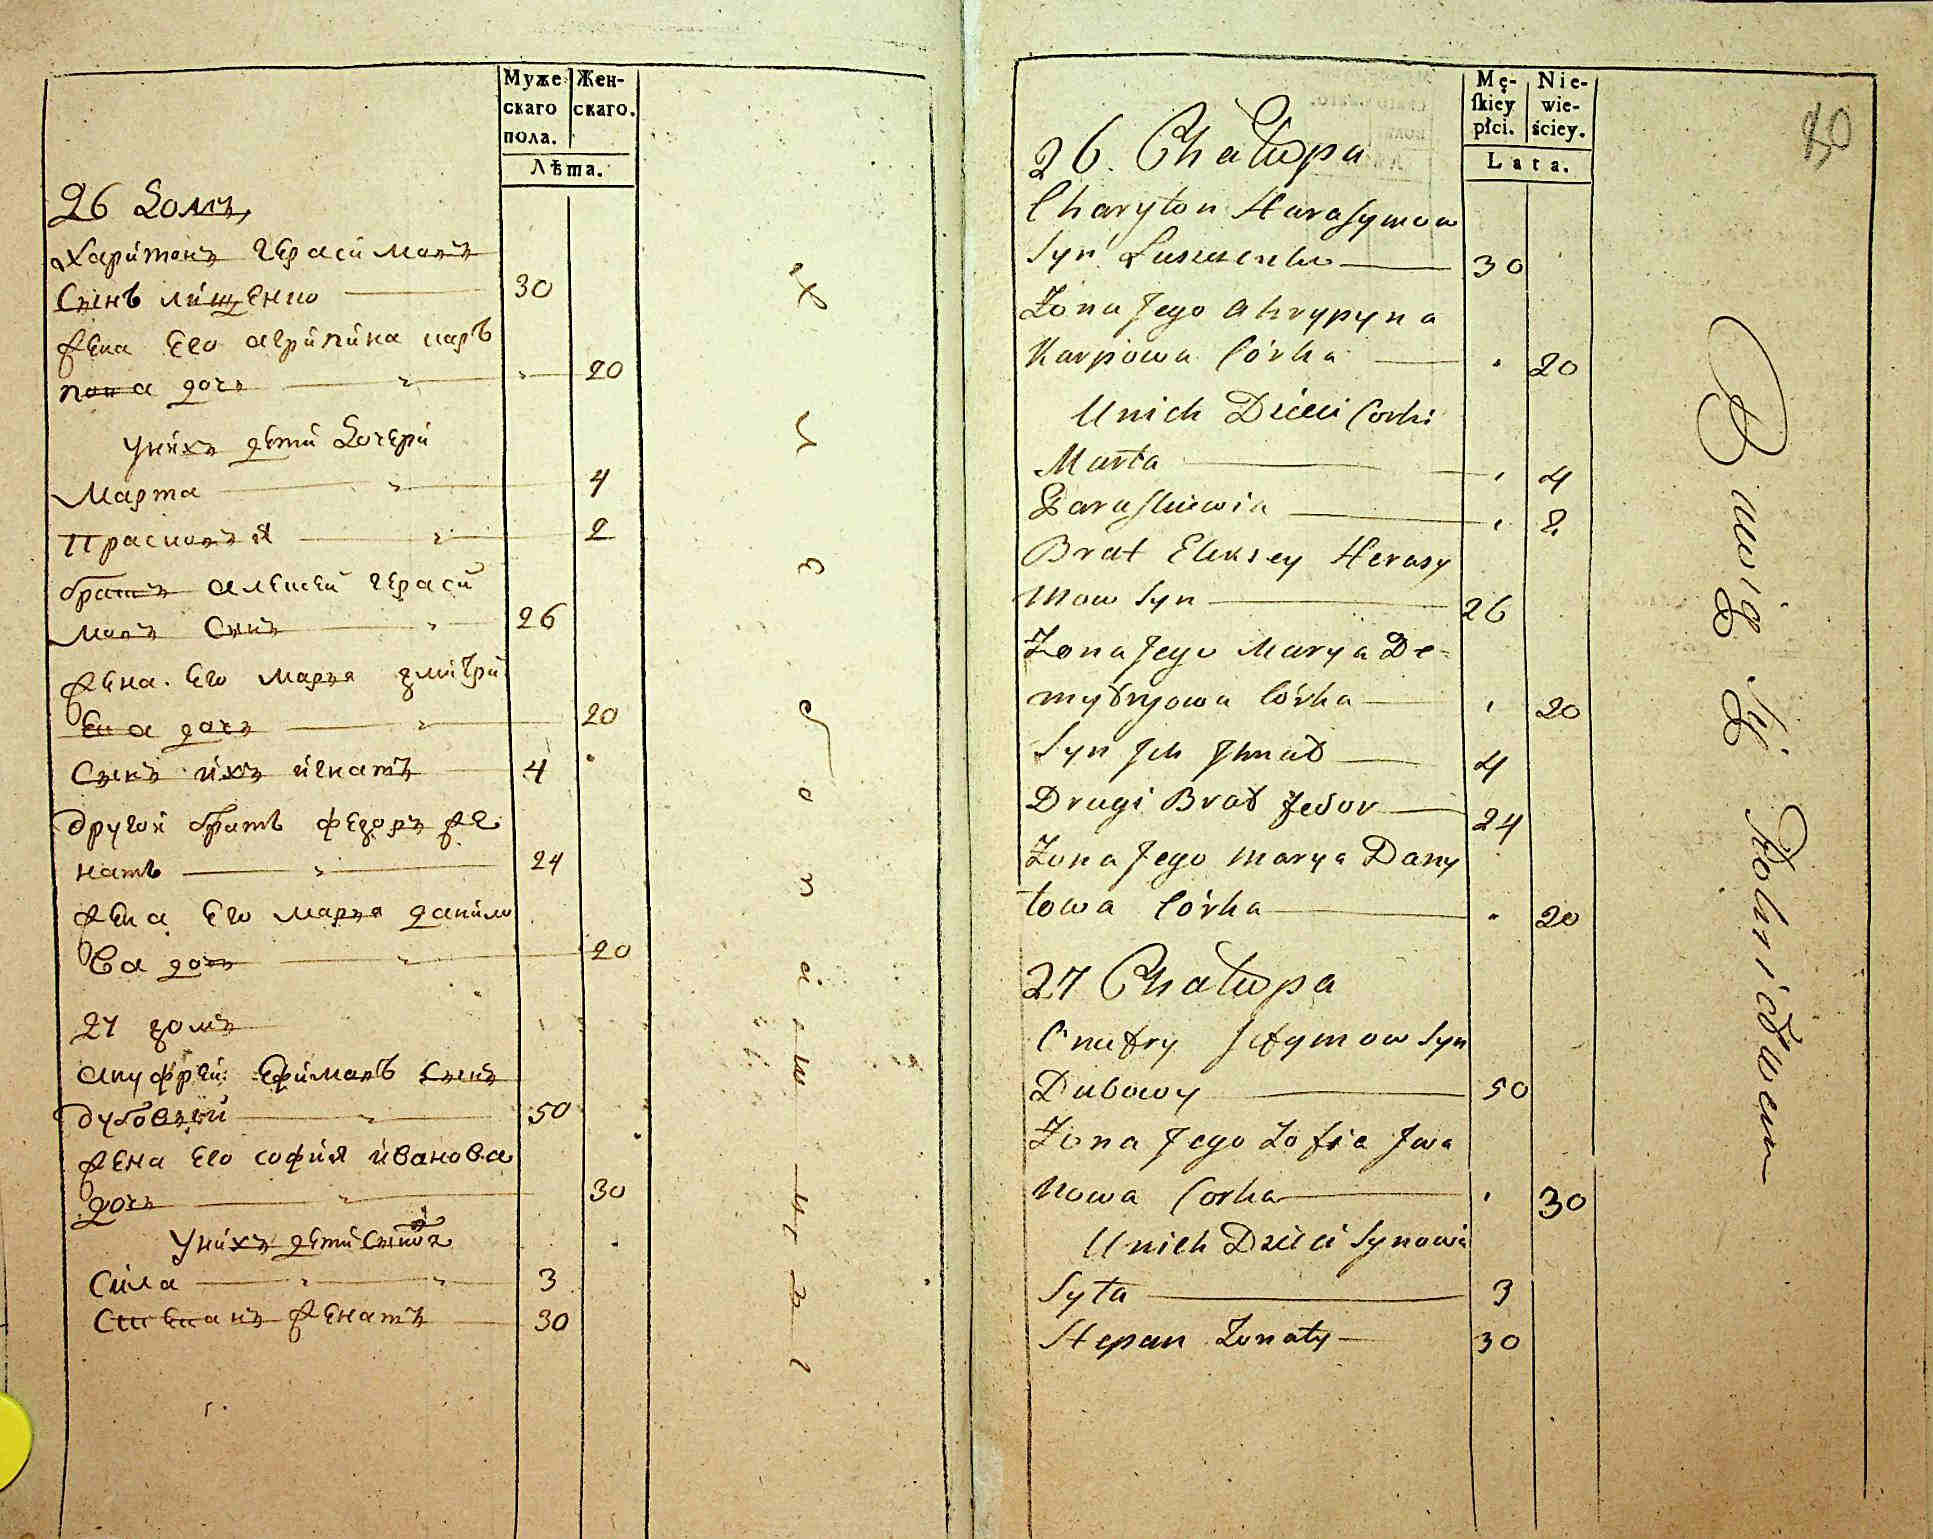 Муже
скаго
пола.
Жен-
скаго.
Лѣта.
26 Домъ
Харитонъ Герасимовъ
Сынъ лищенко 30
Жена Его агрипина карь
пова дочь 20
Униxъ дети Дочери
Марта 4
Прасковъя 2
братъ алексей Гераси
мовъ Сынъ 26
Жена Его маръя дмитри
ева дочь 20
Сынъ ихъ игнатъ 4
другой братъ федоръ же
натъ 24
Жена Его маръя данило
ва дочь 20
27 домъ
ануфрей Ефимовъ Сынъ
дубовый 50
Жена Его софия иванова
дочь 30
Унихъ дети Сынова
Сила 3
Степанъ женатъ 30
хлебопашецъ
Mę-
skiey
płci.
Nie-
wie-
ściey.
Lata.
80
26 Chałupa
Charyton Harasymow
Syn 30
Żona Jego Ahrypyna
Karpowa Córka 20
Unich Dzieci Corki
Marta 4
Paraskiewia 2
Brat Eleksey Herasy
mow Syn 26
Żona Jego Marya De-
mytryowa Córka 20
Syn Ich Ihnat 4
Drugi Brat Fedor 24
Żona Jego Marya Dany
łowa Córka 20
27 Chałupa
Onufry Jefymow Syn
Dubowy 50
Żona Jego Zofia Iwa
nowa Corka 30
Unich Dzieci Synowie
Syła 3
Stepan Żonaty 30
Bawią Się Rolnictwem